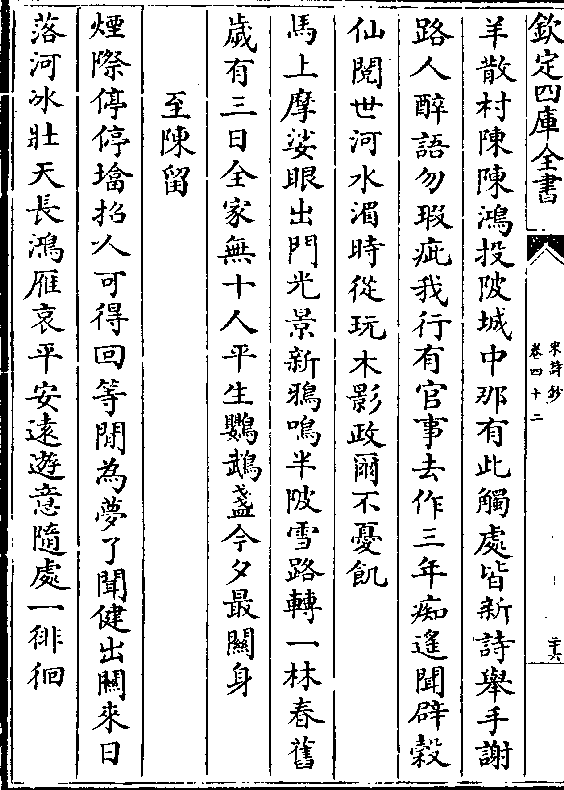 欽定四庫全書
宋詩鈔
卷四十二
羊散村陳陳鴻投陂城中那有此觸處皆新詩舉手謝
路人醉語勿瑕疵我行有官事去作三年痴遙聞辟榖
仙閱世河水湄時從玩木影政爾不憂飢
馬上摩娑眼出門光景新鴉鳴半陂雪路轉一林春舊
歲有三日全家無十人平生鸚鵡盞今夕最關身
至陳留
煙際停停㙮招人可得回等閒為夢了聞健出關來日
落河冰壯天長鴻雁哀平安遠遊意隨處一徘徊